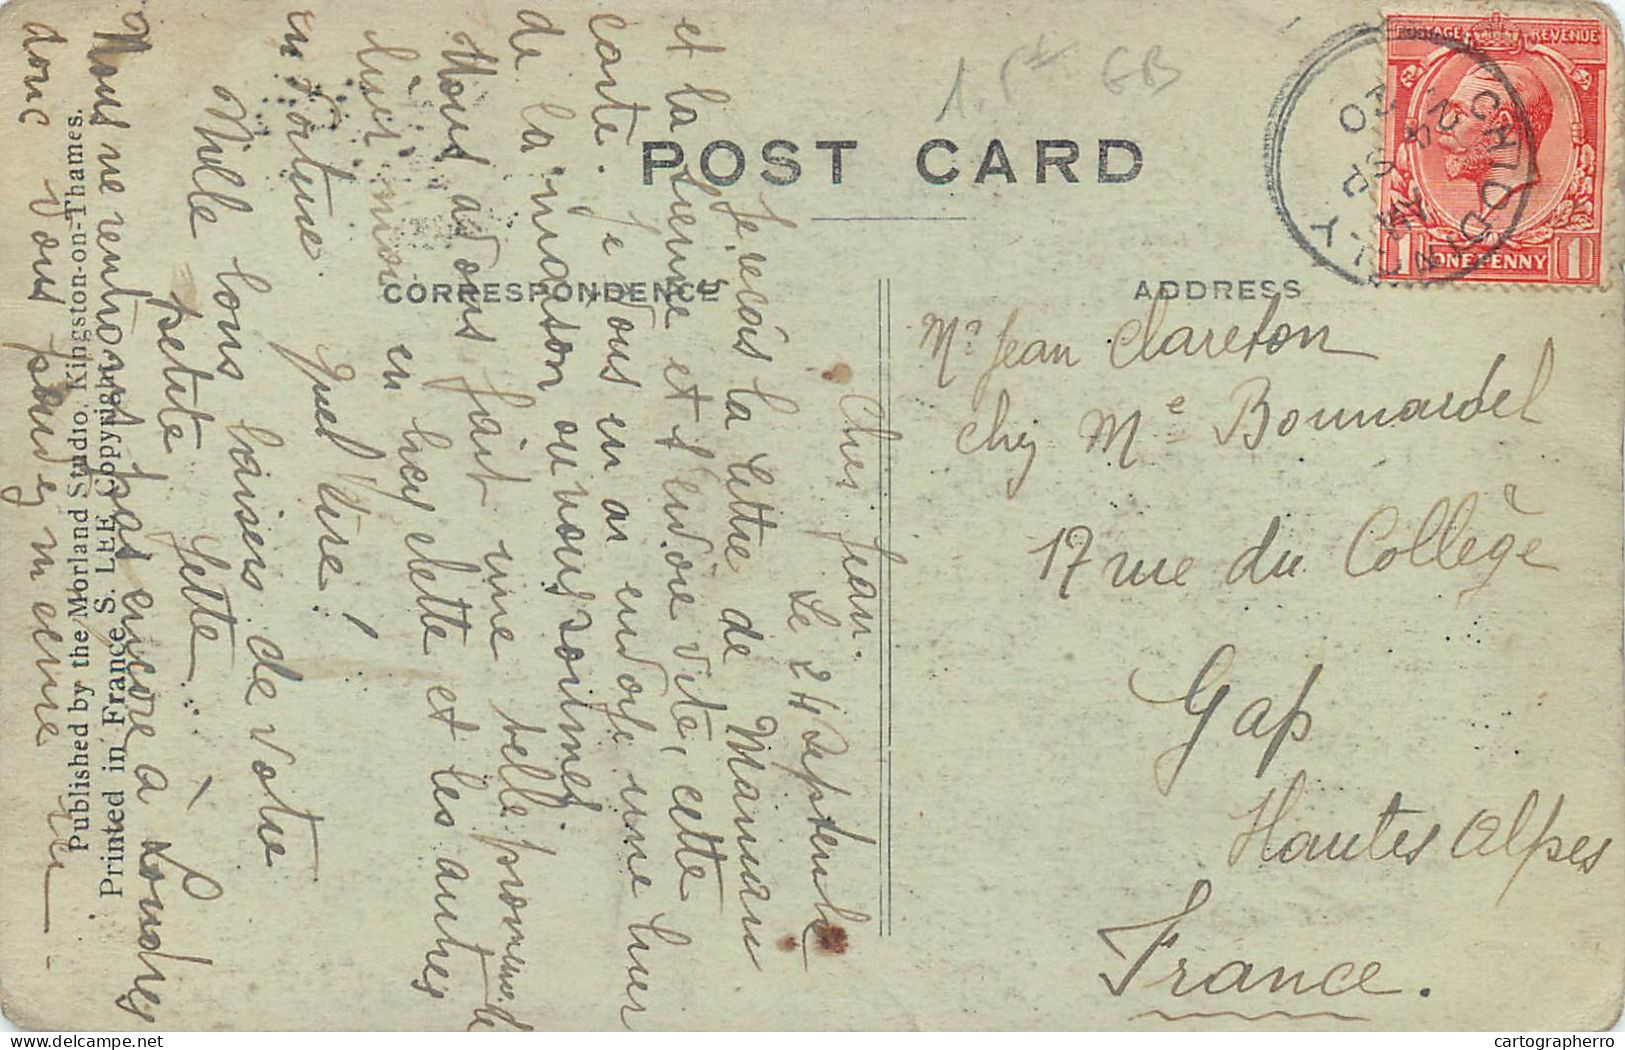 POST CARD
CORRESPONDENCE
ADDRESS
1.5± GB
POSTAGE REVENUE
1 ONE PENNY 1
CHIDDINGLY
24 SP
20
Mr Jean Clareton
chez Me Bonnardel
17 rue du Collège
Gap
Hautes Alpes
France.
Le 24 Septembre
Cher Jean.
Je reçois la lettre de Maman
et la tienne et t'envoie vite, cette
carte. Je vous en ai envoyé une hier
de la maison où nous sommes
Nous avons fait une belle promenade
hier moi en bicyclette et les autres
en voiture. Quel rire!
Mille bons baisers de votre
petite Sette
Nous ne rentrons pas encore à Londres
donc vous pouvez m'écrire
Published by the Morland Studio, Kingston-on-Thames.
Printed in France. S. LEE Copyright.
cartographerro